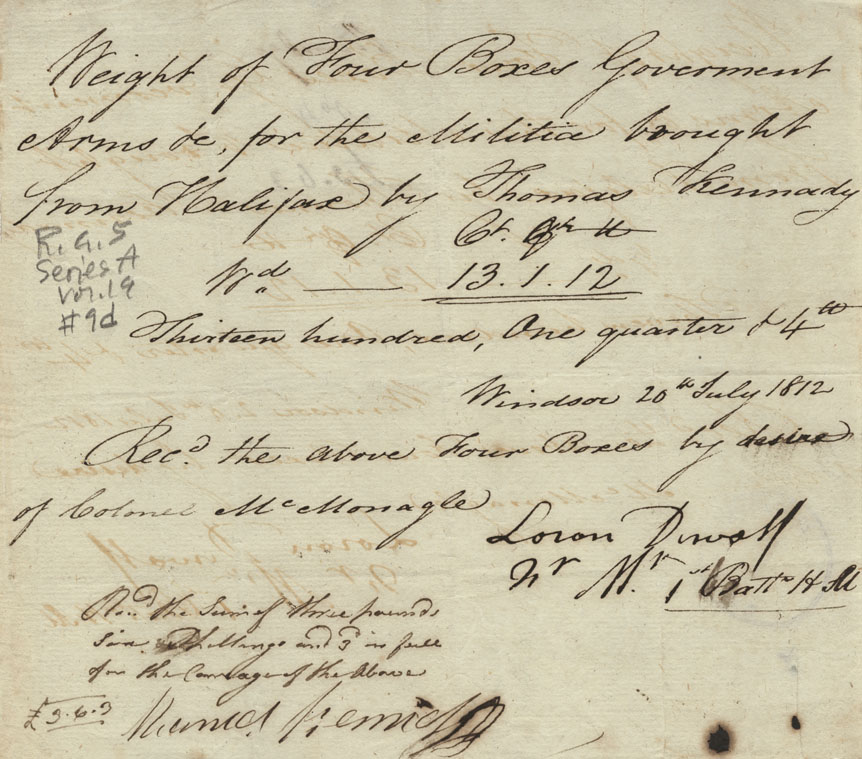 Weight of Four Boxes Goverment
Arms &c, for the Militia brought
from Halifax by Thomas Kennady
Ct. Qr lb
Wd — 13.1.12
Thirteen hundred, One quarter & 4 lb
Windsor 20th July 1812
Rec.d the above Four Boxes by desire
of Colonel McMonagle
Loron Dewolf
Qr Mr 1st Battn H M
R. G. 5
Series A
Vol. 19
#9d
Rec.d the Sum of three pounds
Six Shillings and 3d in full
for the Carriage of the Above
£3.6.3